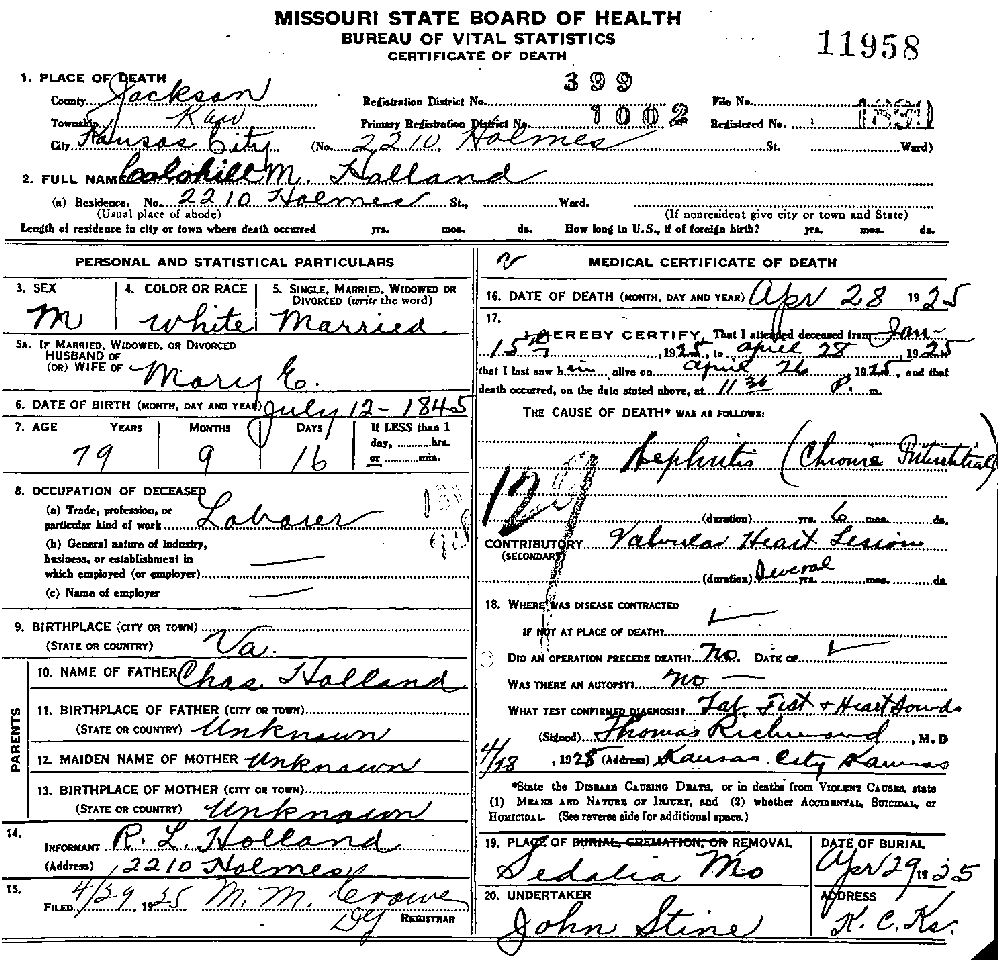 MISSOURI STATE BOARD OF HEALTH
BUREAU OF VITAL STATISTICS
CERTIFICATE OF DEATH
11958
1. PLACE OF DEATH
County Jackson Registration District No. 399 File No.
Township Kaw Primary Registration District No. 1002 Registered No.
City Kansas City (No. 2210 Holmes St. Ward)
2. FULL NAME M. Holland
(a) Residence. No. 2210 Holmes St., Ward.
(Usual place of abode) (If nonresident give city or town and State)
Length of residence in city or town where death occurred yrs. mos. ds. How long in U.S., if of foreign birth? yrs. mos. ds.
PERSONAL AND STATISTICAL PARTICULARS
3. SEX 4. COLOR OR RACE 5. SINGLE, MARRIED, WIDOWED OR
DIVORCED (write the word)
M White Married
5A. IF MARRIED, WIDOWED, OR DIVORCED
HUSBAND OF
(OR) WIFE OF Mary E.
6. DATE OF BIRTH (MONTH, DAY AND YEAR) July 12-1845
7. AGE YEARS MONTHS DAYS If LESS than 1
day, hrs.
or min.
79 9 16
8. OCCUPATION OF DECEASED
(a) Trade, profession, or
particular kind of work Laborer
(b) General nature of industry,
business, or establishment in
which employed (or employer)
(c) Name of employer
9. BIRTHPLACE (CITY OR TOWN)
(STATE OR COUNTRY) Va.
PARENTS
10. NAME OF FATHER Chas. Holland
11. BIRTHPLACE OF FATHER (CITY OR TOWN)
(STATE OR COUNTRY) Unknown
12. MAIDEN NAME OF MOTHER Unknown
13. BIRTHPLACE OF MOTHER (CITY OR TOWN)
(STATE OR COUNTRY) Unknown
14.
INFORMANT R. L. Holland
(Address) 2210 Holmes
15.
FILED 4/29 1925 M. M. Crowe
Dy REGISTRAR
MEDICAL CERTIFICATE OF DEATH
16. DATE OF DEATH (MONTH, DAY AND YEAR) Apr 28 1925
17.
I HEREBY CERTIFY, That I attended deceased from Jan-
15th, 1925, to April 28 1925
that I last saw him alive on April 26, 1925, and that
death occurred, on the date stated above, at 11 30 P. m.
THE CAUSE OF DEATH* WAS AS FOLLOWS:
Nephritis (Chronic Interstitial)
129
(duration) yrs. 6 mos. ds.
CONTRIBUTORY Valvular Heart Lesion
(SECONDARY)
(duration) Several yrs. mos. ds.
18. WHERE WAS DISEASE CONTRACTED
IF NOT AT PLACE OF DEATH?
DID AN OPERATION PRECEDE DEATH? No. DATE OF
WAS THERE AN AUTOPSY? No
WHAT TEST CONFIRMED DIAGNOSIS? Test + Heart Sounds
(Signed) Thomas Richmond, M.D
4/28, 1925 (Address) Kansas City Kansas
*State the DISEASE CAUSING DEATH, or in deaths from VIOLENT CAUSES, state
(1) MEANS AND NATURE OF INJURY, and (2) whether ACCIDENTAL, SUICIDAL, or
HOMICIDAL. (See reverse side for additional space.)
19. PLACE OF BURIAL, CREMATION, OR REMOVAL DATE OF BURIAL
Sedalia Mo Apr 29 1925
20. UNDERTAKER ADDRESS
John Stine K. C. Ks.